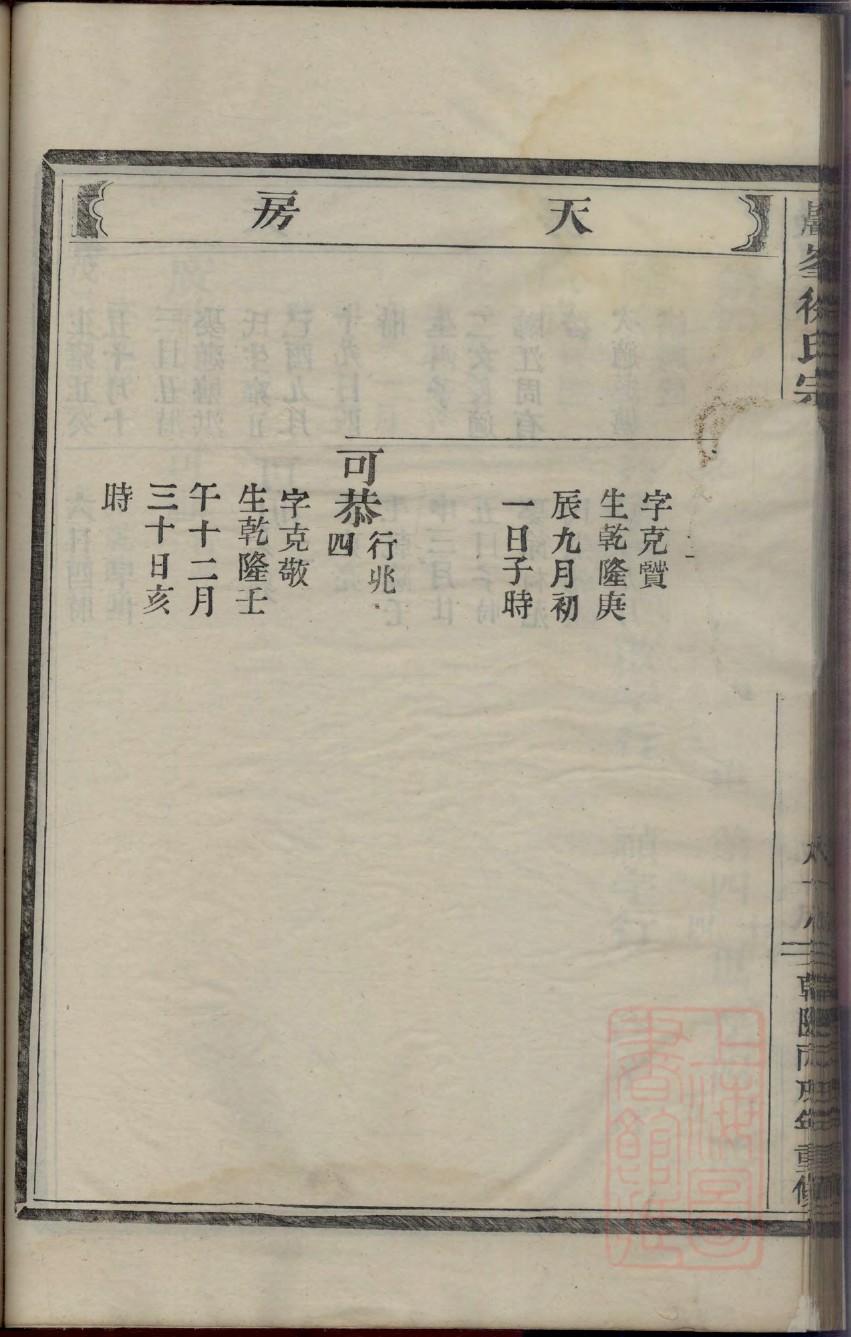 天房
徐氏宗
字克贇
生乾隆庚
辰九月初
一日子時
可恭行兆
四
字克敬
生乾隆壬
午十二月
三十日亥
時
重修
上海圖書館藏